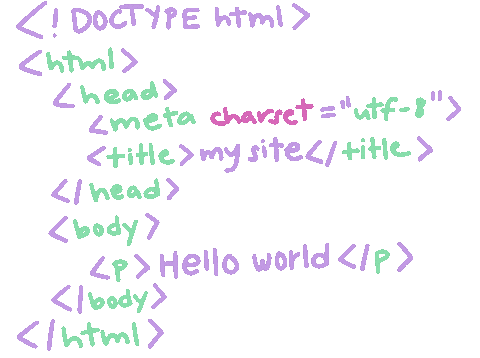 <! DOCTYPE html>
<html>
<head>
<meta charset="utf-8">
<title>my site</title>
</head>
<body>
<p>Hello world</p>
</body>
</html>